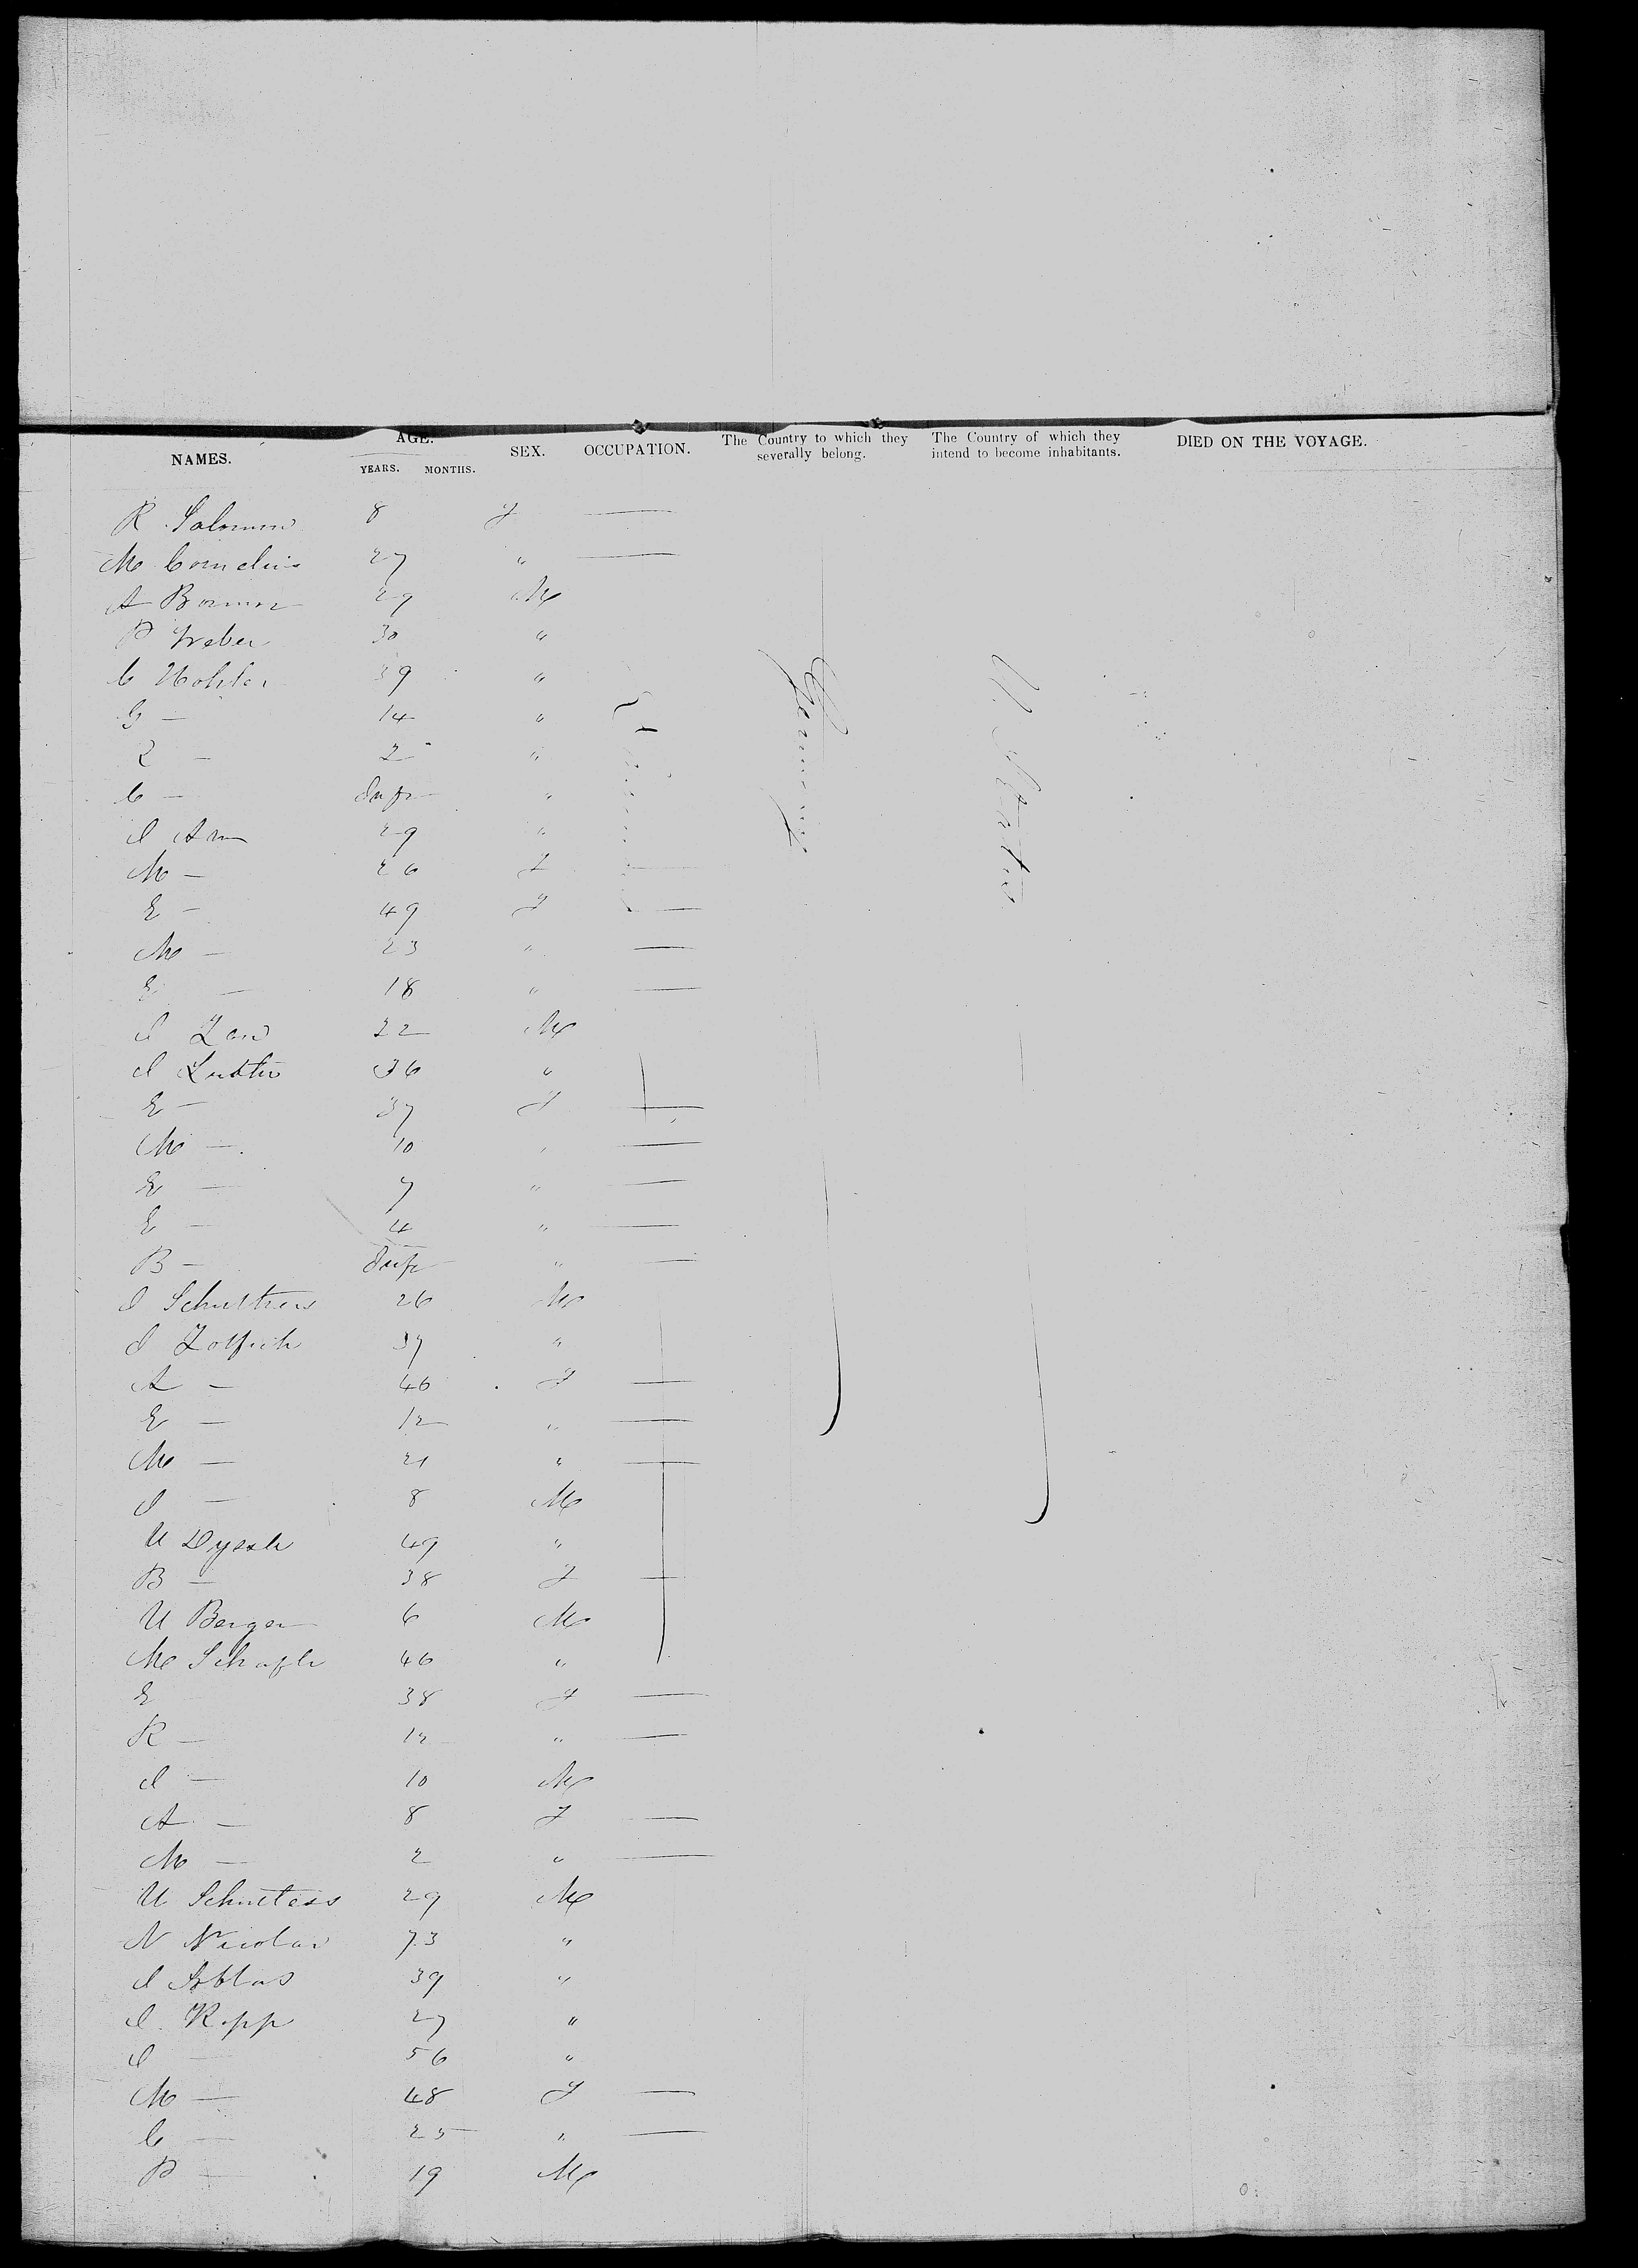 NAMES. AGE. YEARS. MONTHS. SEX. OCCUPATION. The Country to which they severally belong. The Country of which they intend to become inhabitants. DIED ON THE VOYAGE.
R Salomon 8 F —
M Cornelius 27 " —
A 29 M
P Weber 30 "
C Kohler 39 "
G — 14 "
2 "
C — Inft "
I Am 29 "
M — 26 F —
E — 49 F —
M — 23 " —
E — 18 " —
I 22 M
I 36 "
E — 37 F —
M — 10 " —
E — 7 " —
E — 4 " —
B — Inft " —
I Schulthess 26 M
I 37 "
A — 46 F —
E — 12 " —
M — 21 " —
I — 8 M
U 49 "
B — 38 F —
U Berger 6 M
M 46 "
E 38 F —
R — 12 " —
I — 10 M
A — 8 F —
M — 2 " —
U Schultess 29 M
N Nicolai 73 "
I 39 "
I Kopp 27 "
I — 56 "
M — 48 F —
C — 25 " —
P — 19 M
Germany
U. States